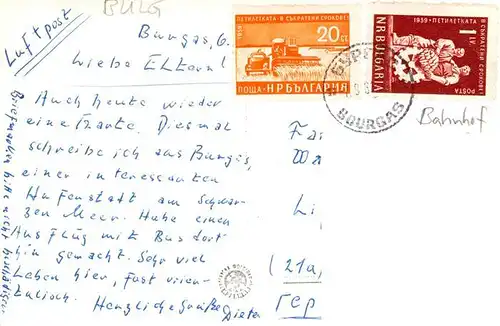 BULG
Luftpost
Burgas, 6.
Liebe Eltern!
Auch heute wieder
eine Karte. Diesmal
schreibe ich aus Burgas,
einer interessanten
Hafenstadt am Schwar-
zen Meer. Habe einen
Ausflug mit Bus dort
hin gemacht. Sehr viel
Leben hier, fast orien-
talisch.
Herzliche Grüße Dieter
Briefmarken bitte nicht beschädigen
ПЕТИЛЕТКАТА В СЪКРАТЕНИ СРОКОВЕ!
1959
20 СТ.
ПОЩА НР БЪЛГАРИЯ
1959 ПЕТИЛЕТКАТА В СЪКРАТЕНИ СРОКОВЕ!
1 ЛВ.
NR BULGARIA
POSTA
BOURGAS
Bahnhof
Fa
Li
(21a,
Гер